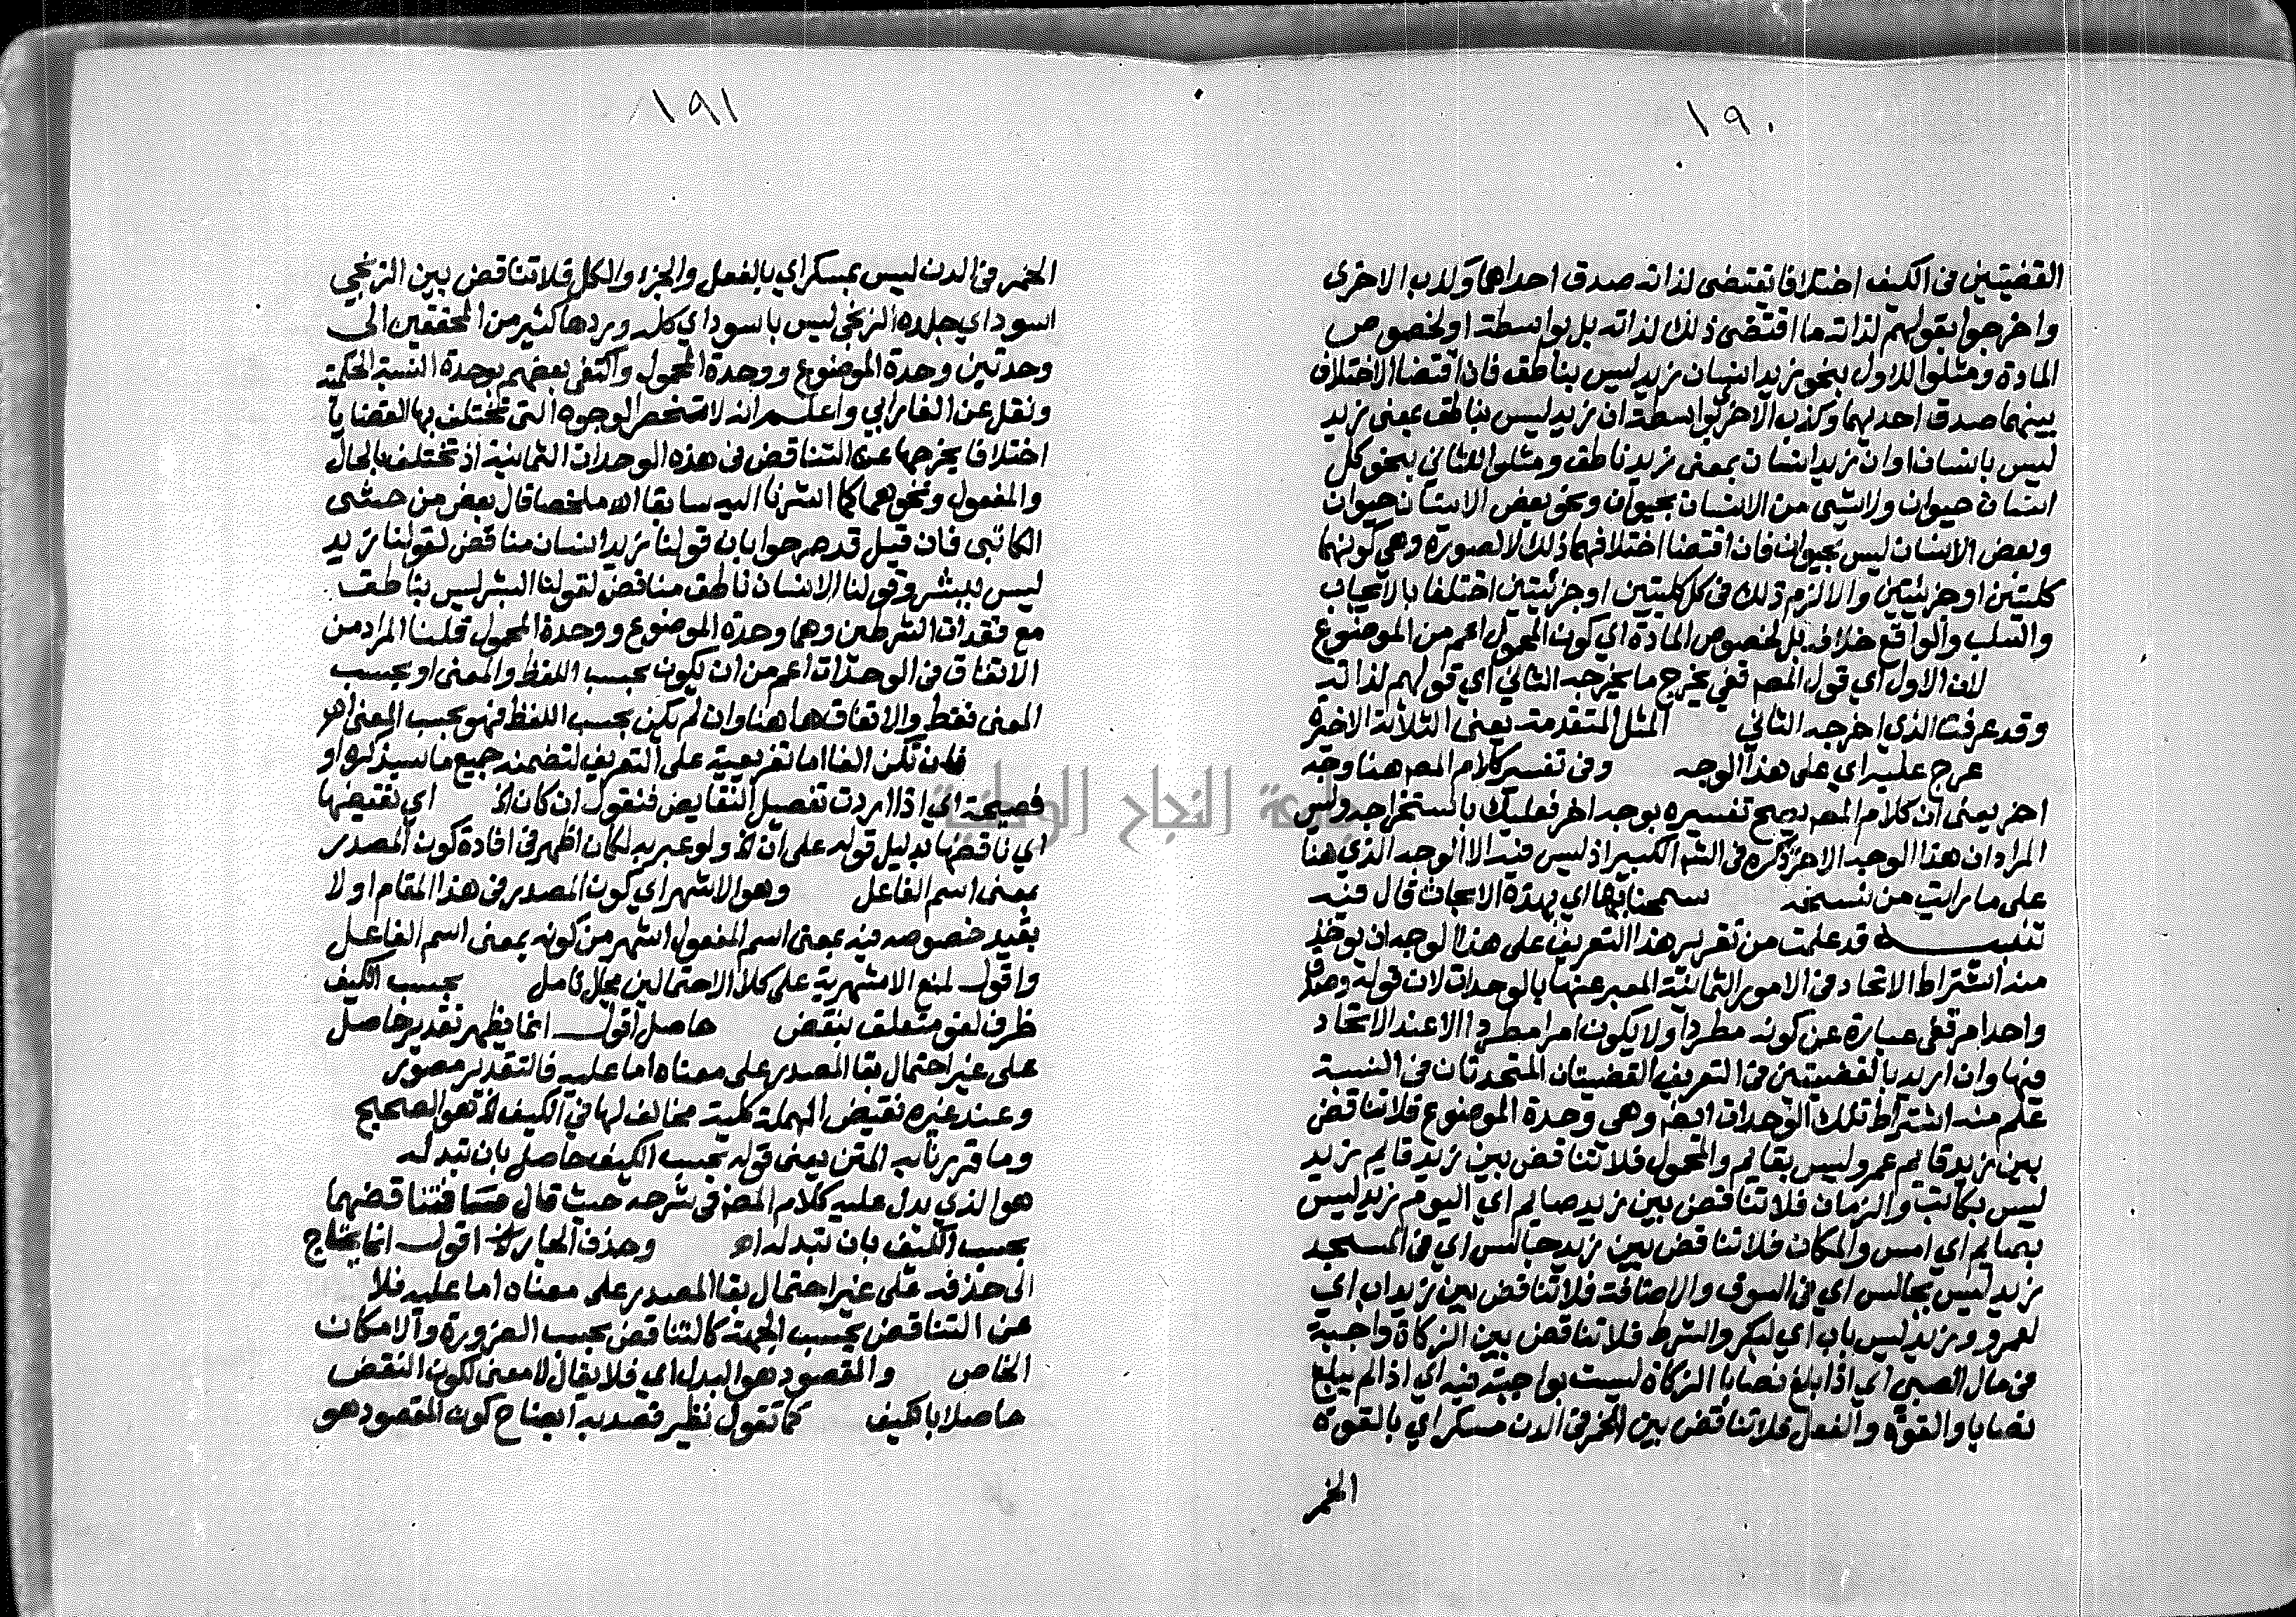 ١٩٠
القضيتين في الكيف اختلافا يقتضى لذاته صدق احداهما وكذب الاخرى
واخرجوا بقولهم لذاته ما اقتضى ذلك لا لذاته بل بواسطة او لخصوص
المادة ومثلوا للاول بنحو زيد انسان زيد ليس بناطق فان اقتضا الاختلاف
بينهما صدق احديهما وكذب الاخرى بواسطة ان زيد ليس بناطق بمعنى زيد
ليس بانسان او ان زيد انسان بمعنى زيد ناطق ومثلوا للثاني بنحو كل
انسان حيوان ولا شي من الانسان بحيوان ونحو بعض الانسان حيوان
وبعض الانسان ليس بحيوان فان اقتضا اختلافهما ذلك لا لصورة وهي كونهما
كليتين او جزئيتين والا لزم ذلك في كل كليتين او جزئيتين اختلفا بالايجاب
والسلب والواقع خلافه بل لخصوص المادة اي كون المحمول اعم من الموضوع
لان الاول اي قول المص قفي يخرج ما يخرجه الثاني اي قولهم لذاته
وقد عرفت الذي اخرجه الثاني المثل المتقدمة يعنى الثلاثة الاخيرة
عرج عليه اي على هذا الوجه وفى تفسير كلام المص هنا وجه
اخر يعني ان كلام المص يصح تفسيره بوجه اخر فعليك باستخراجه وليس
المراد ان هذا الوجه الاخر ذكره في الشم الكبير اذ ليس فيه الا الوجه الذي هنا
على ما رايت من نسخه سمحنا بها اي بهذه الابحاث قال فيه
تنبيه قد علمت من تقرير هذا التعريف على هذا الوجه ان يوخذ
منه اشتراط الاتحاد في الامور الثمانية المعبر عنها بالوحدات لان قوله وصدق
واحد امر قفي عبارة عن كونه مطردا ولا يكون امرا مطردا الا عند الاتحاد
فيها وان اريد بالقضيتين في التعريف القضيتان المتحدتان في النسبة
علم منه اشتراط تلك الوحدات ايضم وهي وحدة الموضوع فلا تناقض
بين زيد قايم عمرو ليس بقايم والمحمول فلا تناقض بين زيد قايم زيد
ليس بكاتب والزمان فلا تناقض بين زيد صايم اي اليوم زيد ليس
بصايم اي امس والمكان فلا تناقض بين زيد جالس اي في المسجد
زيد ليس بجالس اي في السوق والاضافة فلا تناقض بين زيد اب اي
لعمرو وزيد ليس باب اي لبكر والشرط فلا تناقض بين الزكاة واجبة
في مال الصبي اي اذا بلغ نصابا الزكاة ليست بواجبة فيه اي اذا لم يبلغ
نصابا والقوة والفعل فلا تناقض بين الخمر في الدن مسكر اي بالقوة
الخمر
١٩١
الخمر في الدن ليس بمسكر اي بالفعل والجزء والكل فلا تناقض بين الزنجي
اسود اي جلده الزنجي ليس باسود اي كله وردها كثير من المحققين الى
وحدتين وحدة الموضوع ووحدة المحمول واكتفى بعضهم بوحدة النسبة الحكمية
ونقل عن الفارابي واعلم انه لا تنحصر الوجوه التي تختلف بها القضايا
اختلافا يخرجها عن التناقض في هذه الوحدات الثمانية اذ تختلف بالحال
والمفعول ونحوهما كما اشرنا اليه سابقا اه ملخصا قال بعض من حشى
الكاتبى فان قيل قد صرحوا بان قولنا زيد انسان مناقض لقولنا زيد
ليس ببشر وقولنا الانسان ناطق مناقض لقولنا البشر ليس بناطق
مع فقدان الشرطين وهما وحدة الموضوع ووحدة المحمول قلنا المراد من
الاتفاق في الوحدات اعم من ان يكون بحسب اللفظ والمعنى او بحسب
المعنى فقط والاتفاق هاهنا وان لم يكن بحسب اللفظ فهو بحسب المعنى اهر
فان تكن الفا اما تفريعية على التعريف لتضمنه جميع ما سيذكره او
فصيحة اي اذا اردت تفصيل النقايض فنقول ان كان الخ اي نقيضها
اي ناقضها بدليل قوله على ان الخ ولو عبر به لكان اظهر في افادة كون المصدر
بمعنى اسم الفاعل وهو الاشهر اي كون المصدر في هذا المقام او لا
بقيد خصوصه فيه بمعنى اسم المفعول اشهر من كونه بمعنى اسم الفاعل
واقول لمنع الاشهرية على كلا الاحتمالين مجال تامل بحسب الكيف
ظرف لغو متعلق بنقض حاصل اقول انما يظهر تقدير حاصل
على غير احتمال بقا المصدر على معناه اما عليه فالتقدير مصور
وعند غيره نقيض المهملة كلية مخالف لها في الكيف الخ هو الصحيح
وما قررنا به المتن يعنى قوله بحسب الكيف حاصل بان تبدله
هو الذي يدل عليه كلام المص في شرحه حيث قال فتناقضهما
بحسب الكيف بان تبدله اه وحذف الجار الخ اقول انما يحتاج
الى حذفه على غير احتمال بقا المصدر على معناه اما عليه فلا
عن التناقض بحسب الجهة كالتناقض بحسب الضرورة والامكان
الخاص والمقصود هو البدل اي فلا يقال لا معنى لكون النقض
حاصلا بالكيف كما تقول نظير قصد به ايضاح كون المقصود هو
جامعة النجاح الوطنية